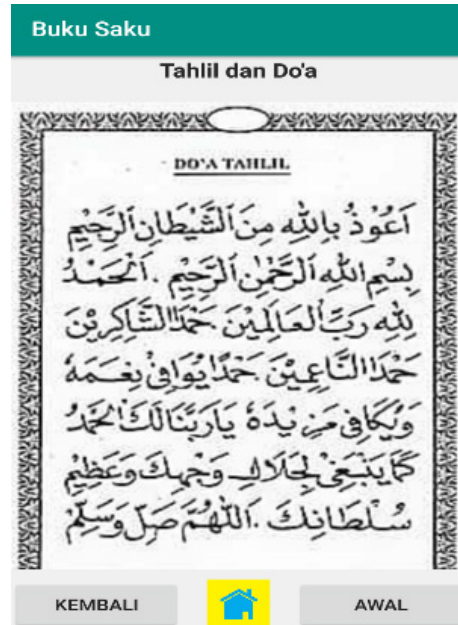 Buku Saku
Tahlil dan Do'a
DO'A TAHLIL
اَعُوْذُ بِاللّٰهِ مِنَ الشَّيْطَانِ الرَّجِيْمِ
بِسْمِ اللّٰهِ الرَّحْمٰنِ الرَّحِيْمِ . اَلْحَمْدُ
لِلّٰهِ رَبِّ الْعَالَمِيْنَ حَمْدَ الشَّاكِرِيْنَ
حَمْدَ النَّاعِمِيْنَ حَمْدًا يُوَافِيْ نِعَمَهُ
وَيُكَافِئُ مَزِيْدَهُ يَارَبَّنَا لَكَ الْحَمْدُ
كَمَا يَنْبَغِيْ لِجَلَالِ وَجْهِكَ وَعَظِيْمِ
سُلْطَانِكَ . اَللّٰهُمَّ صَلِّ وَسَلِّمْ
KEMBALI
AWAL